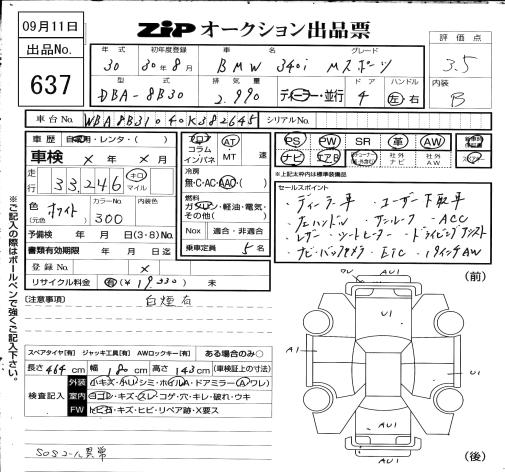 09月11日
ZIP オークション出品票
出品No.
637
年式 初年度登録 車名 グレード
30 30年8月 BMW 340i Mスポーツ
型式 排気量 ドア ハンドル
DBA-8B30 2.990 ディーラー・並行 4 左 右
評価点
3.5
内装
B
車台No. WBA8B31040K382645 シリアルNo.
車歴 自家用・レンタ・( )
車検 × 年 × 月
走行 33,246 キロ マイル
色 (元色) ホワイト カラーNo. 300 内装色
予備検 年 月 日(3・8)No.
書類有効期限 年 月 日迄
登録No. ×
リサイクル料金 有(¥19330) 未
フロア コラム インパネ
AT MT 速
冷房
無・C・AC・AAC・( )
燃料
ガソリン・軽油・電気・その他( )
Nox 適合・非適合
乗車定員 5名
PS PW SR 革 AW
ナビ エアB 社外ナビ 社外AW
※上記太枠内は標準装備品
セールスポイント
・ディーラー車 ・ユーザー下取車
・左ハンドル ・サンルーフ ・ACC
・レザー ・シートヒーター ・ドライビングアシスト
・ナビ・バックカメラ ・ETC ・19インチAW
[注意事項]
白煙有
※ご記入の際はボールペンで強くご記入下さい。
(前)
AU1
U1
A1
U1
U1
AU1
(後)
スペアタイヤ[有] ジャッキ工具[有] AWロックキー[有] ある場合のみ○
長さ 464 cm 幅 180 cm 高さ 143 cm (車検証上の寸法)
検査記入
外装 小キズ・小U・シミ・ホイルA・ドアミラー(A ワレ)
室内 ヨゴレ・キズ・スレ・コゲ・穴・キレ・破れ・ウキ
FW トビ石・キズ・ヒビ・リペア跡・X要ス
SOSコール異常